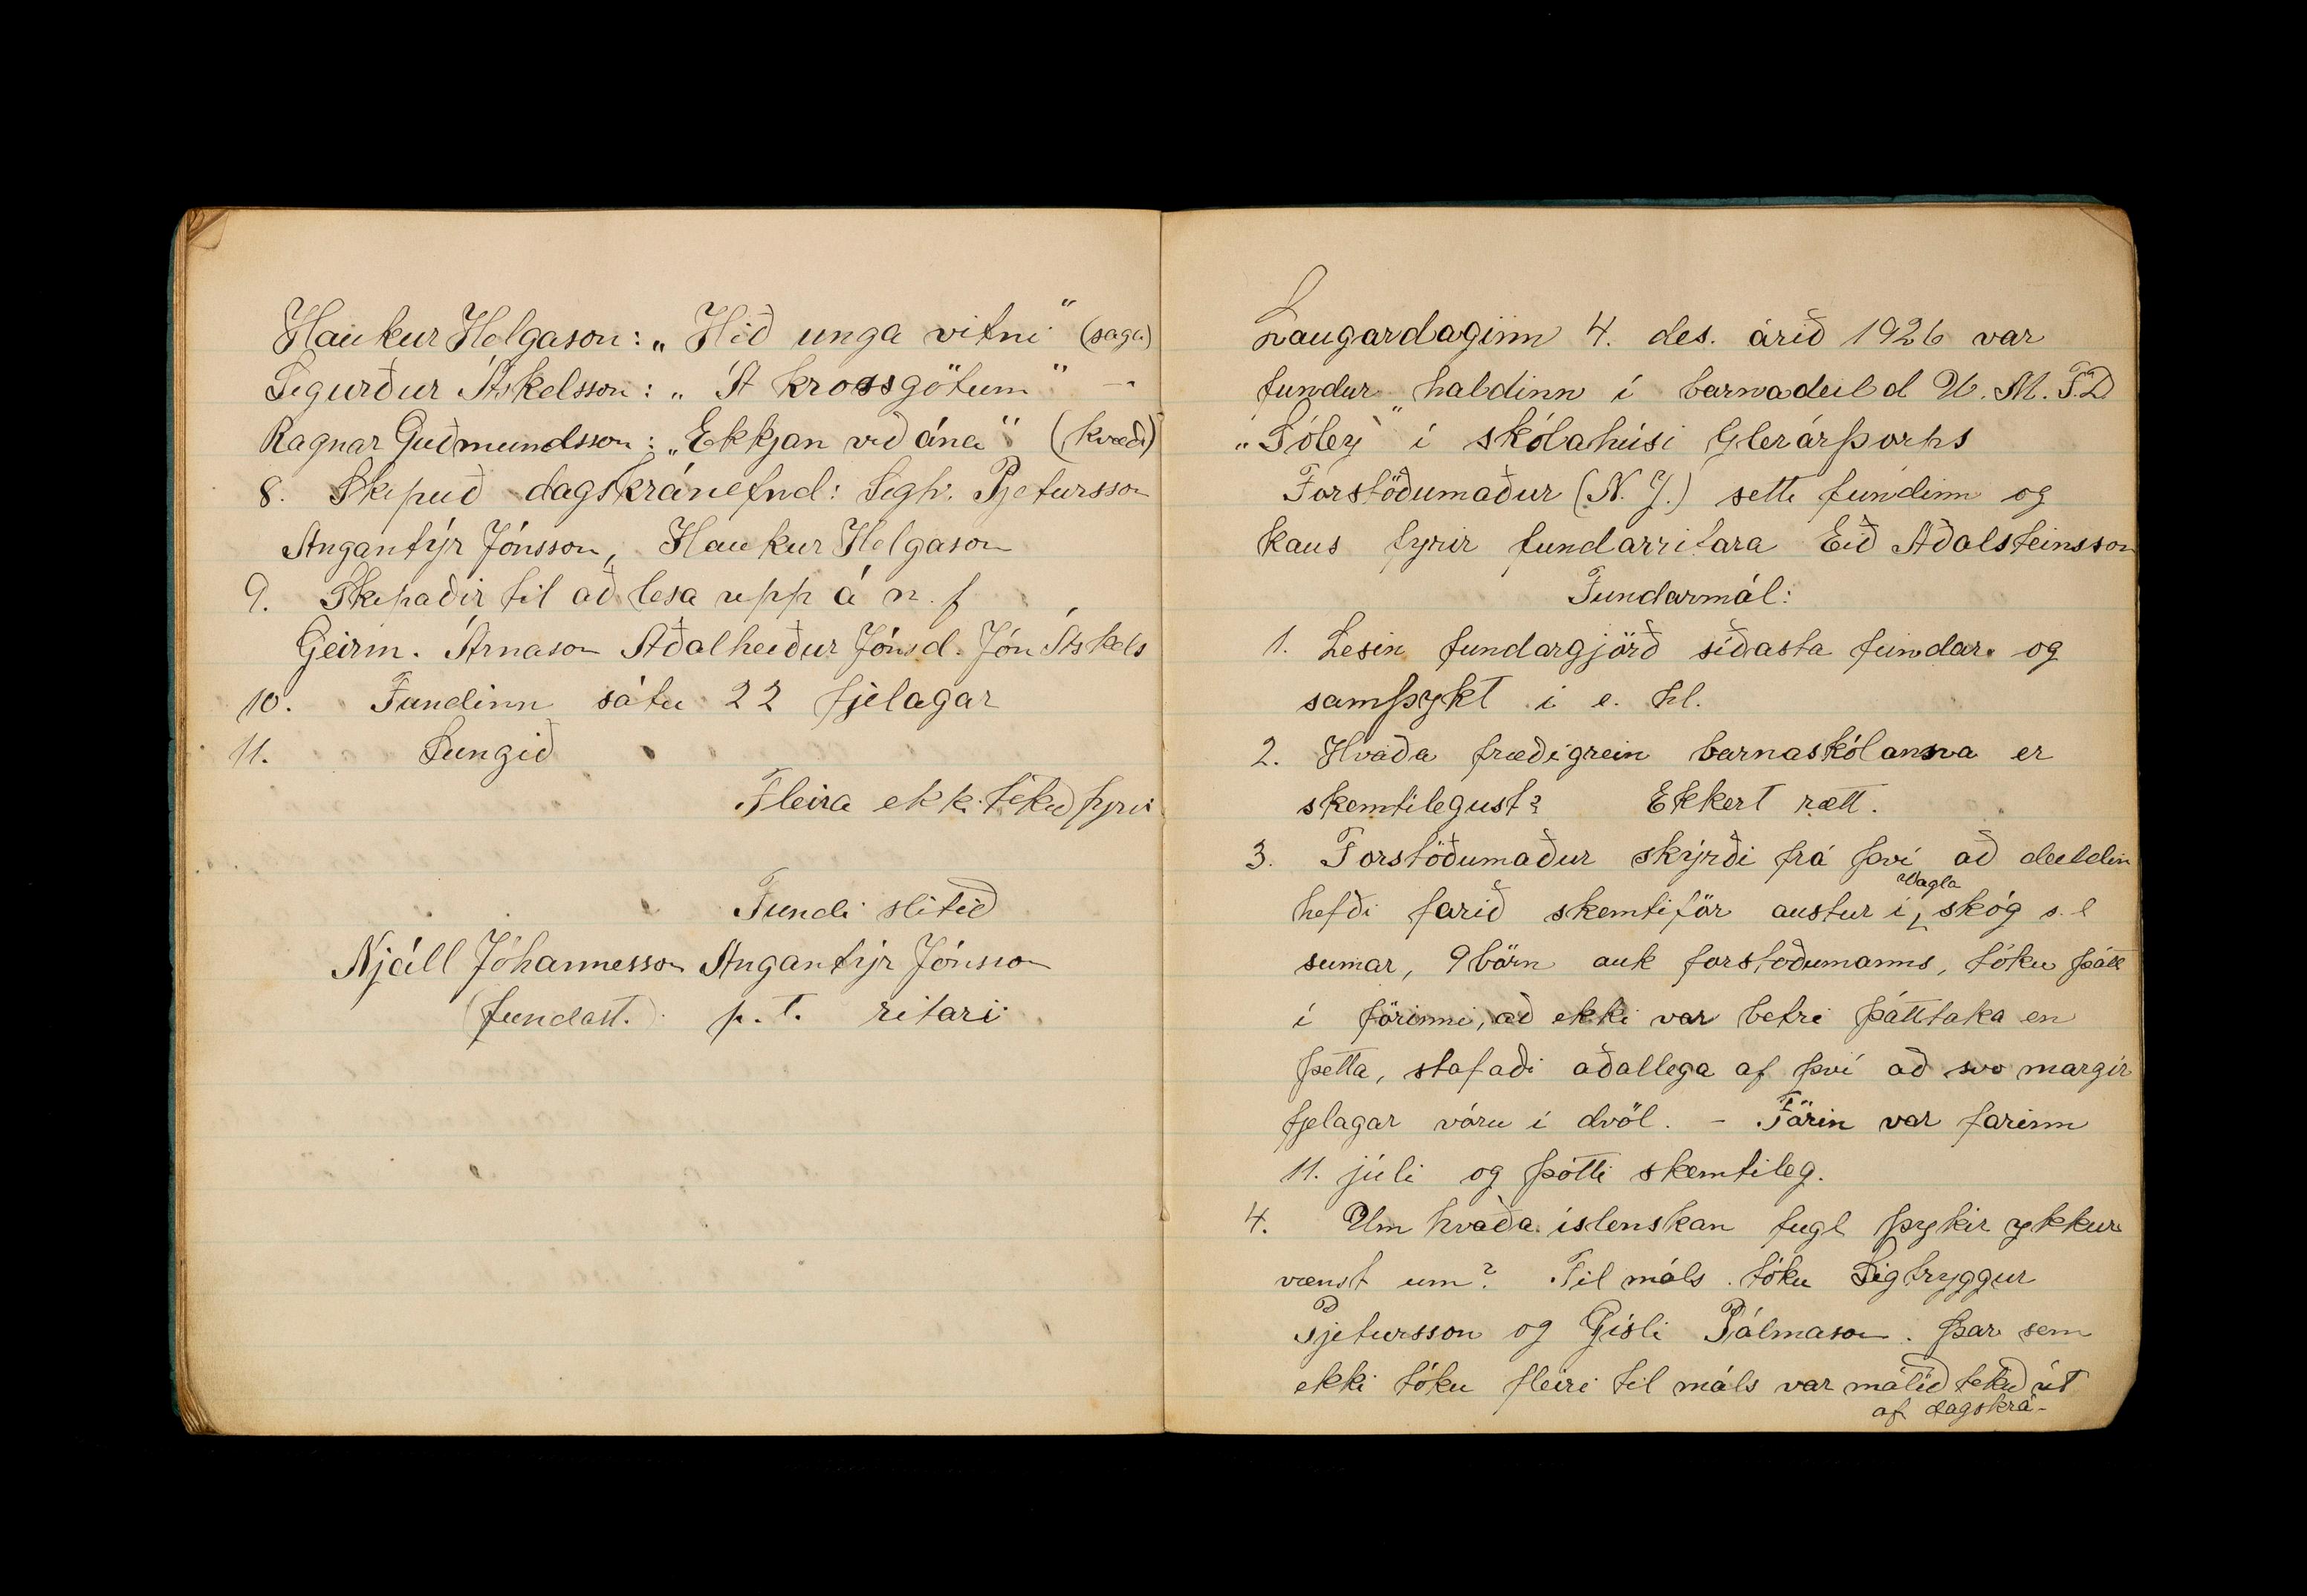 Haukur Helgason: „Hið unga vitni“ (saga)
Sigurður Áskelsson: „Á krossgötum“ –"–
Ragnar Guðmundsson: „Ekkjan við ána“ (kvæði)
8. Skipuð dagskránefnd: Sigtr. Pjetursson
Angantýr Jónsson, Haukur Helgason
9. Skipaðir til að lesa upp á n. f
Geirm. Árnason Aðalheiður Jónsd. Jón Áskels
10. Fundinn sátu 22 fjelagar
11. Sungið
Fleira ekki tekið fyrir
Fundi slitið
Njáll Jóhannesson Angantýr Jónsson
(fundast.) p.t. ritari
Laugardaginn 4. des. árið 1926 var
fundur haldinn í barnadeild U.M.F.Þ
„Sóley“ í skólahúsi Glerárþorps
Forstöðumaður (N.J.) setti fundinn og
kaus fyrir fundarritara Eið Aðalsteinsson
Fundarmál:
1. Lesin fundargjörð síðasta fundar og
samþykt í e. hl.
2. Hvaða fræðigrein barnaskólanna er
skemtilegust? Ekkert rætt.
3. Forstöðumaður skýrði frá því að deildin
hefði farið skemtiför austur í Vaglaskóg s.l
sumar, 9 börn auk forstöðumanns, tóku þátt
í förinni, að ekki var betri þátttaka en
þetta, stafaði aðallega af því að svo margir
fjelagar vóru í dvöl. – Förin var farinn
11. júli og þótti skemtileg.
4. Um hvaða íslenskan fugl þykir ykkur
vænst um? Til máls tóku Sigtryggur
Pjetursson og Gísli Pálmason. Þar sem
ekki tóku fleiri til máls var málið tekið út
af dagskrá-